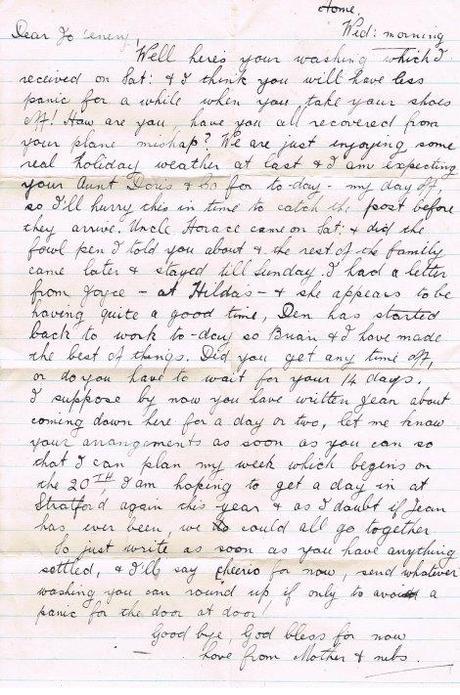 Home.
Wed: morning
Dear Jo 'enery,
Well here's your washing which I
received on Sat: & I think you will have less
panic for a while when you take your shoes
off! How are you, have you all recovered from
your plane mishap? We are just enjoying some
real holiday weather at last & I am expecting
your Aunt Doris & Co for to-day - my day off,
so I'll hurry this in time to catch the post before
they arrive. Uncle Horace came on Sat: & did the
fowl pen I told you about & the rest of the family
came later & stayed till Sunday. I had a letter
from Joyce - at Hilda's - & she appears to be
having quite a good time, Den has started
back to work to-day so Brian & I have made
the best of things. Did you get any time off,
or do you have to wait for your 14 days.
I suppose by now you have written Jean about
coming down here for a day or two, let me know
your arrangements as soon as you can so
that I can plan my week which begins on
the 20TH, I am hoping to get a day in at
Stratford again this year & as I doubt if Jean
has ever been, we could all go together.
So just write as soon as you have anything
settled, & I'll say cheerio for now, send whatever
washing you can round up if only to avoid a
panic for the door at door!
Good bye, God bless for now
love from Mother & nibs.